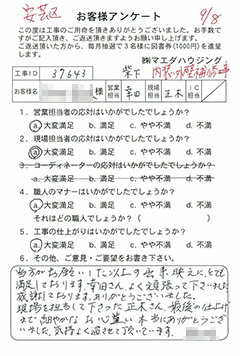 安芸区
お客様アンケート
9/8
この度は工事のご用命を頂きありがとうございました。お手数で
すがご記入頂き、ご返送頂きますようお願い申し上げます。
ご返送頂いた方から、毎月抽選で3名様に図書券(1000円)を進呈
します。
㈱マエダハウジング
工事ID 37643 階下 内装・外壁補修工事
お客様名 様 営業担当 幸田 現場担当 正木 IC担当
1. 営業担当者の対応はいかがでしたでしょうか?
a. 大変満足 b. 満足 c. やや不満 d. 不満
2. 現場担当者の対応はいかがでしたでしょうか?
a. 大変満足 b. 満足 c. やや不満 d. 不満
3. コーディネーターの対応はいかがでしたでしょうか?
a. 大変満足 b. 満足 c. やや不満 d. 不満
4. 職人のマナーはいかがでしたでしょうか?
a. 大変満足 b. 満足 c. やや不満 d. 不満
それはどの職人でしょうか? ( )
5. 工事の仕上がりはいかがでしたでしょうか?
a. 大変満足 b. 満足 c. やや不満 d. 不満
6. その他、ご意見・ご要望をお書き下さい。
お願いした以上の出来映えに、とても
満足しております。幸田さん、よく頑張って下さいました
感謝しております。ありがとうございました。
現場を担当して下さった正木さん、最後の仕上げ
まで細やかなお心遣い本当にありがとうござい
ました。気持よく過ごさせて頂いています。